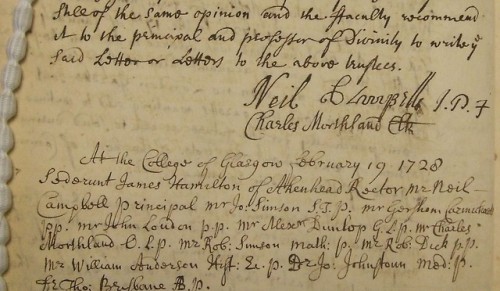 shee of the same opinion and the Faculty recommend
it to the principal and professor of Divinity to write ye
said Letter or Letters to the above trustees.
Neil Campbell J. P. +
Charles Morthland Clk
At the College of Glasgow February 19 1728
Sederunt James Hamilton of Akenhead Rector mr Neil
Campbell principal mr Jo: Simson S. T. p. mr Gershom Carmichael
pp. mr John Loudon p. p. mr Alexr Dunlop G. L. p. mr Charles
Morthland O. L. p. mr Rob: Simson math: p. mr Rob: Dick p. p.
Mr William Anderson Hist: Ec. p. Dr Jo: Johnstoun med: p.
Dr Tho: Brisbane AB. p.